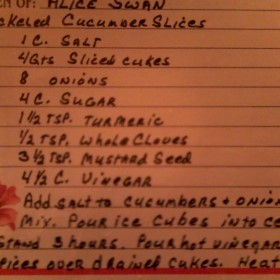 EN OF: ALICE SWAN
ckeled Cucumber Slices
1 C. SALT
4 Qts Sliced cukes
8 ONIONS
4 C. SUGAR
1 1/2 TSP. TURMERIC
1/2 TSP. Whole Cloves
3 1/2 TSP. Mustard Seed
4 1/2 C. VINEGAR
Add SALT to CUCUMBERS + ONION
Mix. Pour ice Cubes into ce
STAND 3 hours. Pour hot vinegar
pices over drained Cukes. Heat